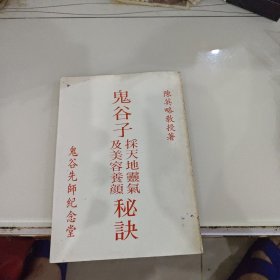 陳英略教授著
鬼谷子採天地靈氣及美容養顏秘訣
鬼谷先師紀念堂